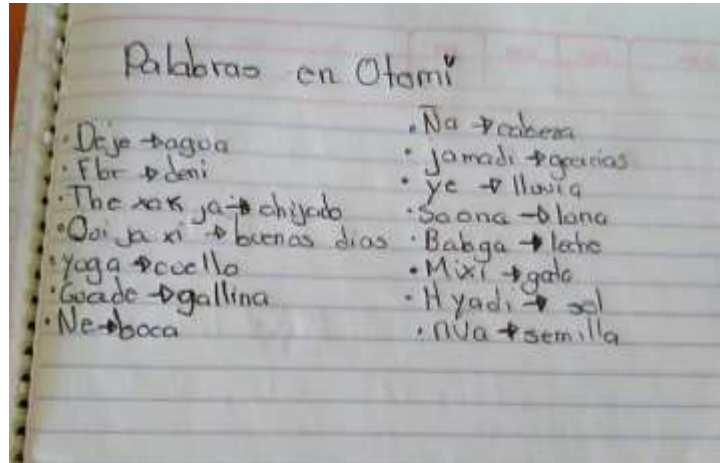 Palabras en Otomí
• Deje → agua
• Flor → deni
• The xax ja → ahijado
• Ooi ja xi → buenas dias
• yoga → cuello
• Guade → gallina
• Ne → boca
• Ña → cabeza
• jamadi → gracias
• ye → lluvia
• Saana → lana
• Babga → leche
• Mixi → gato
• Hyadi → sol
• nUa → semilla